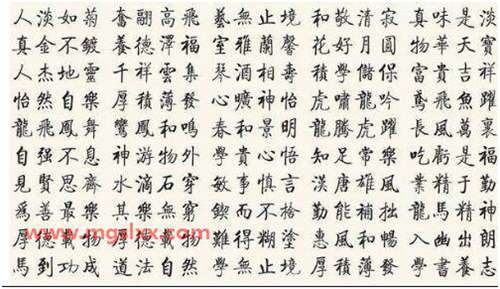 人淡如菊 奮翮高飛 藝無止境 和敬清寂 真味是淡
真金不鍍 養德澤福 室雅蘭馨 花好月圓 物華天寶
人杰地靈 千祥雲集 琴酒相壽 學儲 富貴吉祥
怡然自樂 厚積薄發 曠神怡 虎嘯龍吟 鳶飛魚躍
龍飛鳳舞 鸞鳳和鳴 春和景明 龍騰虎躍 長風萬裏
自强不息 神游物外 學貴心悟 知足常樂 吃虧是福
見賢思齊 水滴石穿 敏事慎言 漢唐雄風 業精于勤
爲善最樂 其樂無窮 鍥而不捨 勤能補拙 龍馬精神
厚德載物 厚德載物 難得糊塗 惠風和暢 入幽出朗
馬到功成 道法自然 學無止境 厚積薄發 學書養志